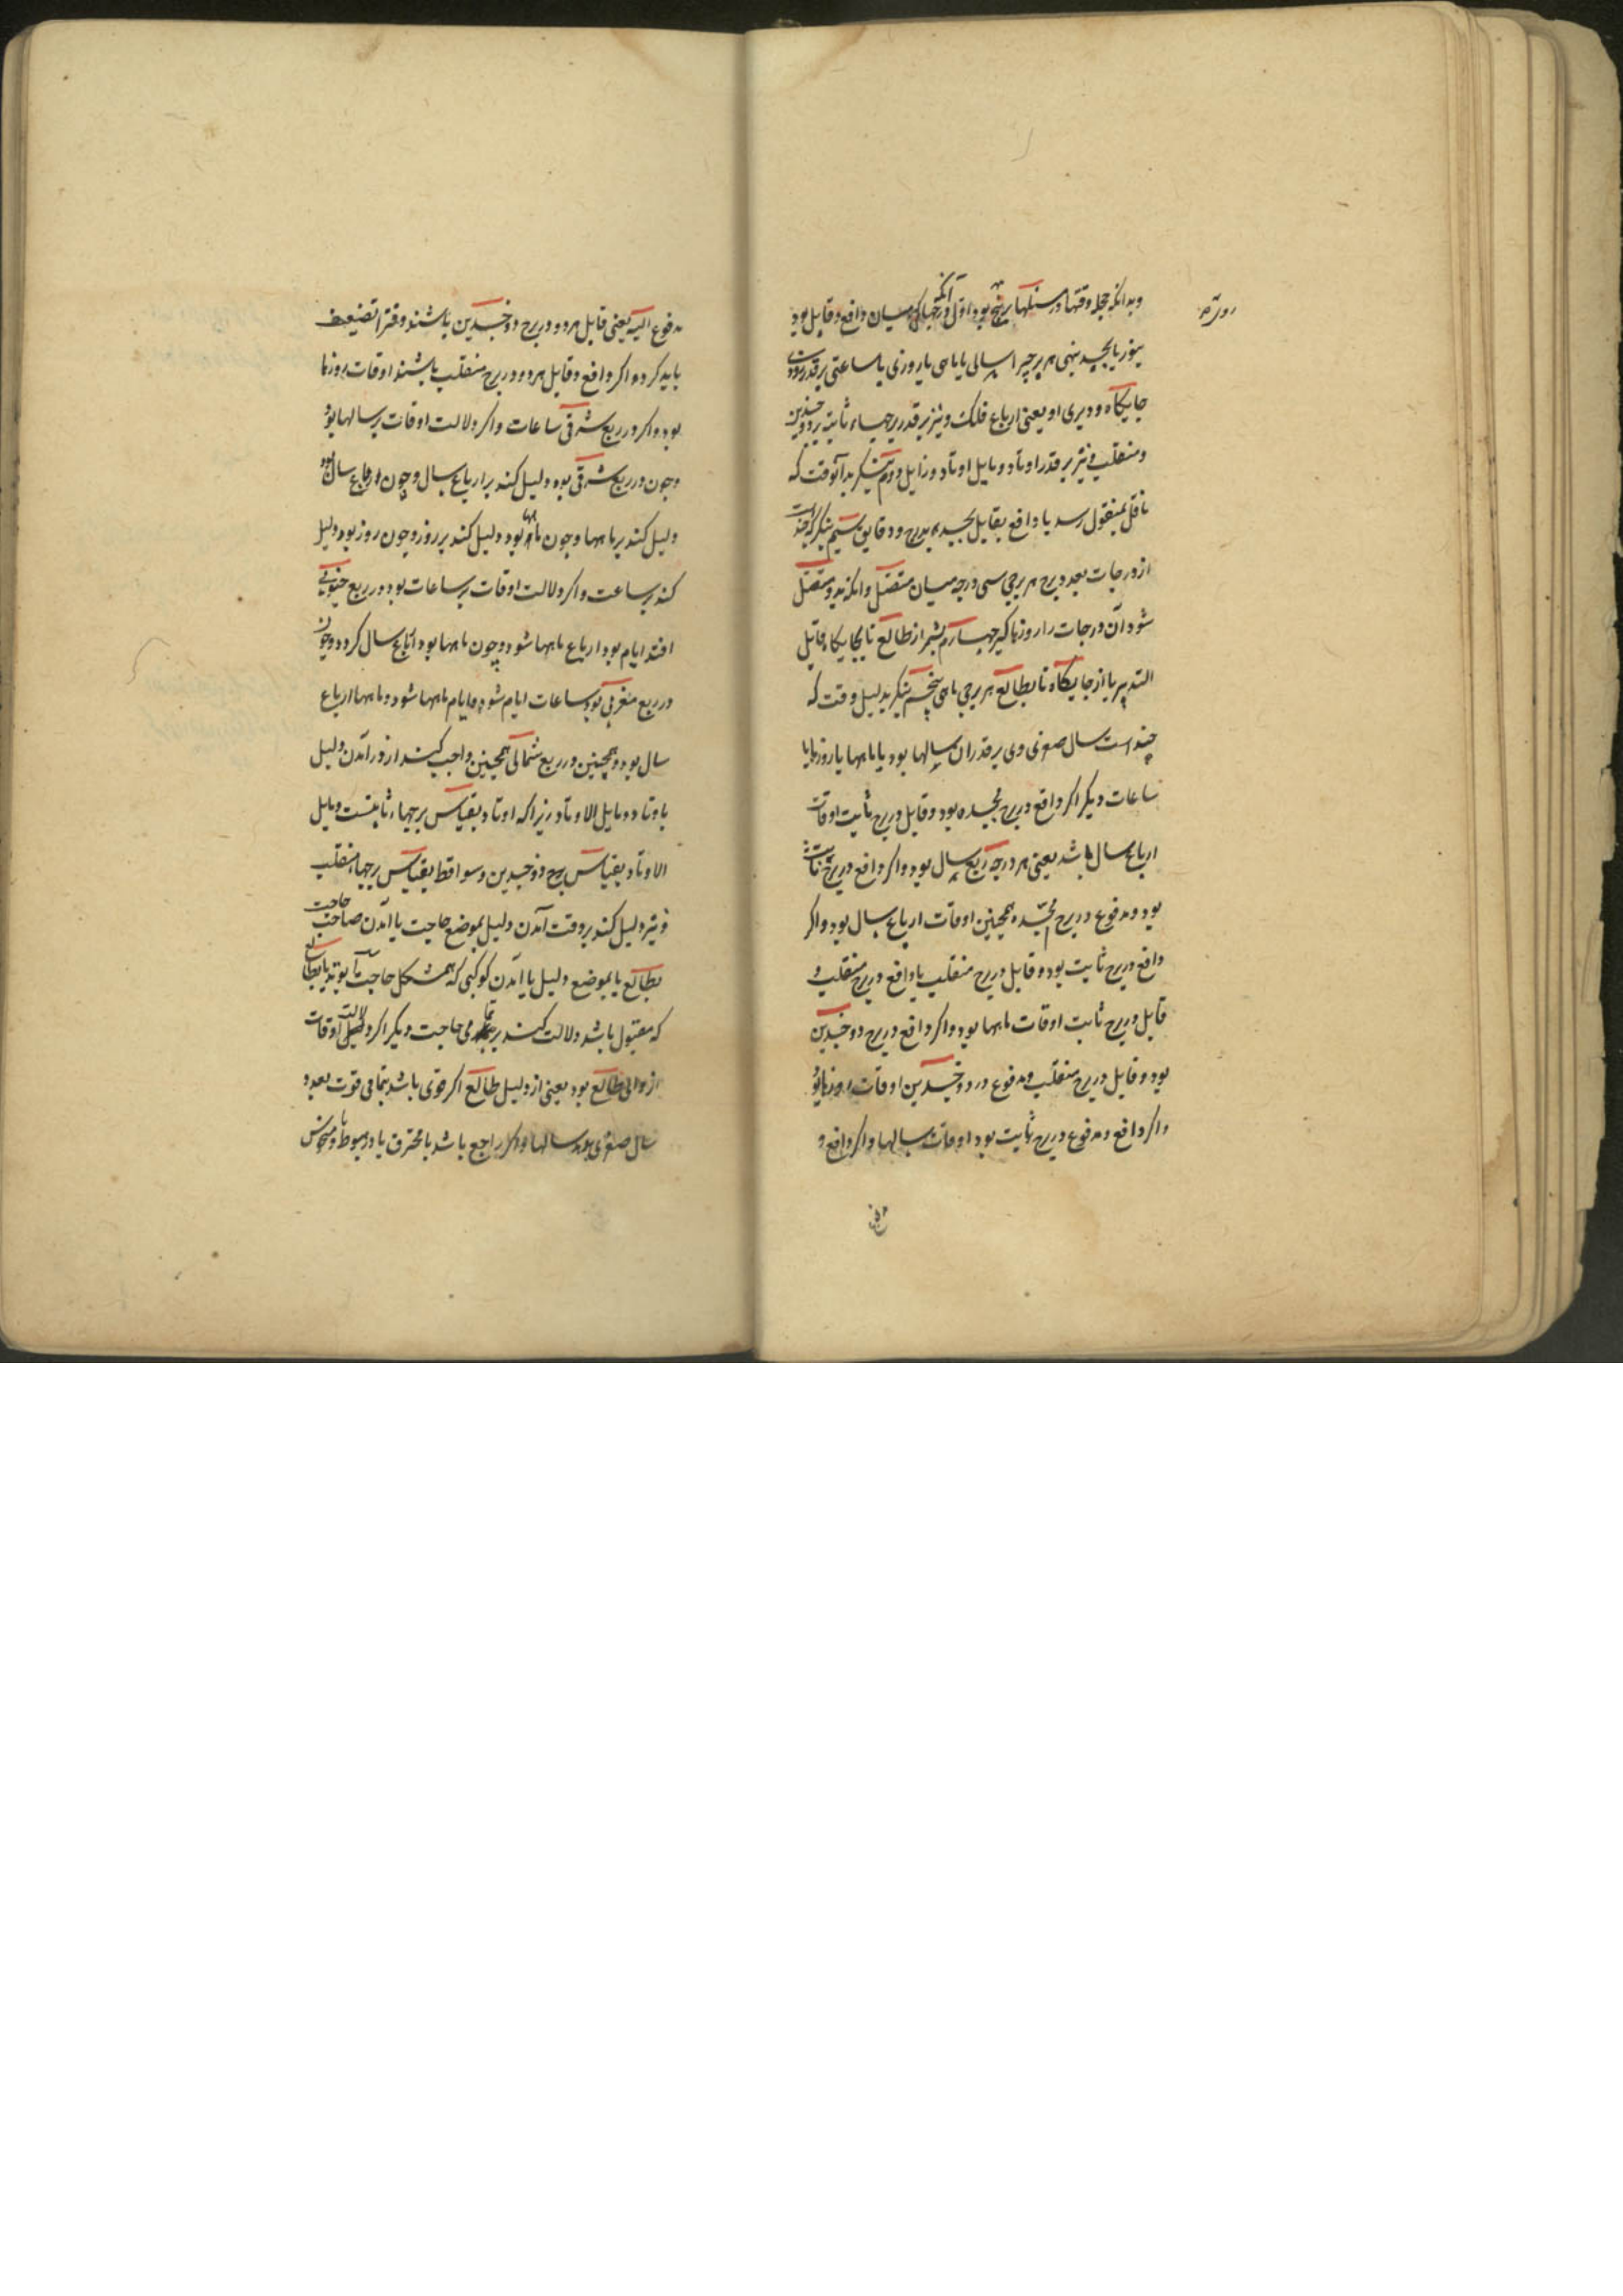 وبدانکه جمله وقتها در مسئلها بر پنج بود اول آنکه درجهاکی میان دافع و قابل بود
هر برجیرا سالی یا ماهی یا روزی یا ساعتی بر قدر زودی
جایکاه و دیری او یعنی ارباع فلک و نیز بر قدر برجهاء ثابت و ذوجسدین
و منقلب و نیز بر قدر اوتاد و مایل اوتاد و زایل دوم بنکر بدآنوقت که
ناقل بمنقول رسد یا دافع بقابل بجسد بدرج و دقایق سیم بنکر که چند است
از درجات بعد و برج هر برجی سی درجه میان متصل وانکه بدو متصل
شود آن درجات را روزها کیر چهارم بشمر از طالع تا بجایکاه قابل
التدبیر یا از جایکاه تا بطالع هر برجی ماهی پنجم بنکر بدلیل وقت که
چند است سال صغری وی بر قدر آن سالها بود یا ماهها یا روزها یا
ساعات دیکر اکر دافع در برج مجسده بود و قابل در برج ثابت اوقات
ارباع سال باشد یعنی هر درجه ربع سال بود و اکر دافع در برج ثابت
بود و مدفوع در برج مجسده همچنین اوقات ارباع سال بود و اکر
دافع در برج ثابت بود و قابل در برج منقلب یا دافع در برج منقلب و
قابل در برج ثابت اوقات ماهها بود و اکر دافع در برج ذوجسدین
بود و قابل در برج منقلب و مدفوع در ذوجسدین اوقات روزها بود
و اکر دافع و مدفوع در برج ثابت بود اوقات سالها و اکر دافع و
مدفوع الیه یعنی قابل هر دو در برج ذوجسدین باشند وقترا تضعیف
باید کرد و اکر دافع و قابل هر دو در برج منقلب باشند اوقات روزها
بود و اکر در ربع شرقی ساعات و اکر دلالت اوقات بر سالها بود
و چون در ربع شرقی بود دلیل کند بر ارباع سال و چون ارباع سال بود
دلیل کند بر ماهها و چون ماهها بود دلیل کند بر روز و چون روز بود دلیل
کند بر ساعت و اکر دلالت اوقات بر ساعات بود در ربع جنوبی
افتد ایام بود ارباع ماهها شود و چون ماهها بود ارباع سال کردد و چون
در ربع مغربی بود ساعات ایام شود و ایام ماهها شود و ماهها ارباع
سال بود و همچنین در ربع شمالی همچنین واجب کند از درآمدن دلیل
باوتاد و مایل الاوتاد زیرا که اوتاد بقیاس برجهاء ثابتست و مایل
الاوتاد بقیاس برج ذوجسدین و سواقط بقیاس برجهاء منقلب
و نیز دلیل کند بر وقت آمدن دلیل بموضع حاجت یا آمدن صاحب حاجت
بطالع یا بموضع دلیل یا آمدن کوکبی که همشکل حاجت بود یا بطالع
که مقبول باشد دلالت کند بر تمامی حاجت دیکر اکر دلالت اوقات
از والی طالع بود یعنی از دلیل طالع اکر قوی باشد بتمامی قوت بعدد
سال صغری بود سالها و اکر راجع باشد یا محترق یا در هبوط یا منحوس